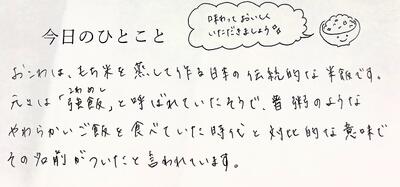 味わっておいしく
いただきましょうね
今日のひとこと
おこわは、もち米を蒸して作る日本の伝統的な米飯です。
こわめし
元々は「強飯」と呼ばれていたそうで、昔粥のような
やわらかいご飯を食べていた時代と対比的な意味で
その名前がついたと言われています。